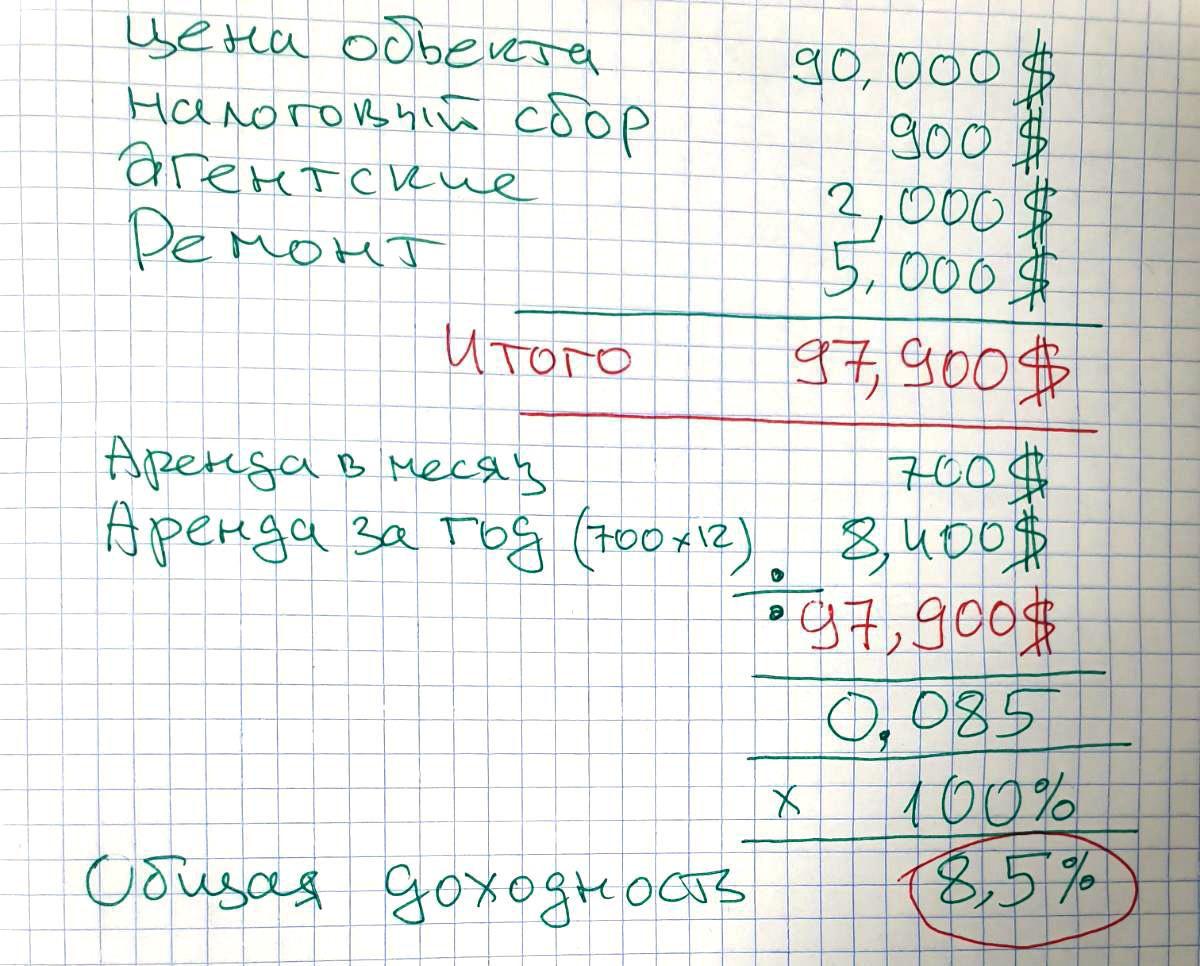 Цена объекта 90,000 $
Налоговый сбор 900 $
Агентские 2,000 $
Ремонт 5,000 $
Итого 97,900 $
Аренда в месяц 700 $
Аренда за год (700x12) 8,400 $
÷ 97,900 $
0,085
x 100%
Общая доходность 8,5%